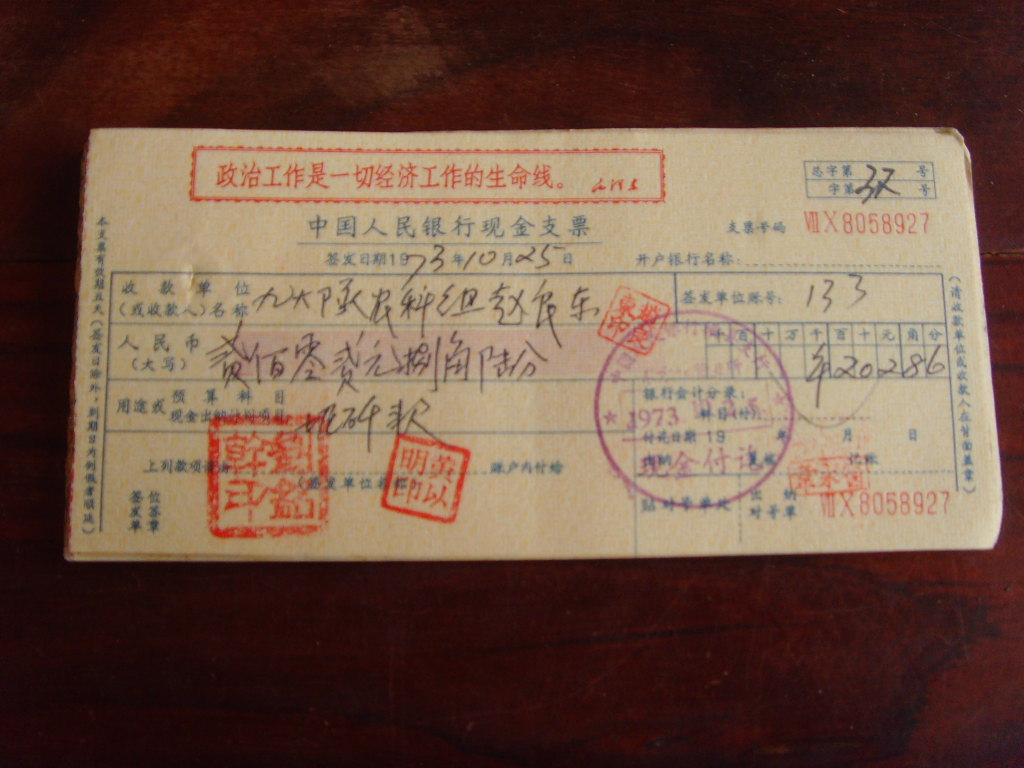 政治工作是一切经济工作的生命线。
总字第 号
字第 号
中国人民银行现金支票
支票号码 ⅧX8058927
签发日期1973年10月25日
开户银行名称:
收款单位
(或收款人)名称 九大队农科组赵民东
签发单位账号: 133
人民币
(大写) 贰佰零贰元捌角陆分
千百十万千百十元角分
¥20286
用途或 预算科目
现金出纳计划项目
款
银行会计分录:
科目(付)
1973
付讫日期 19 年 月 日
现金付讫
上列款项请由 账户内付给
(签发单位名称)
签发单位 签章
黄以明印
贴对号单处
出纳
对号单
ⅧX8058927
本支票有效期五天(签发日除外,到期日为例假者顺延)
(请收款单位或收款人在背面盖章)